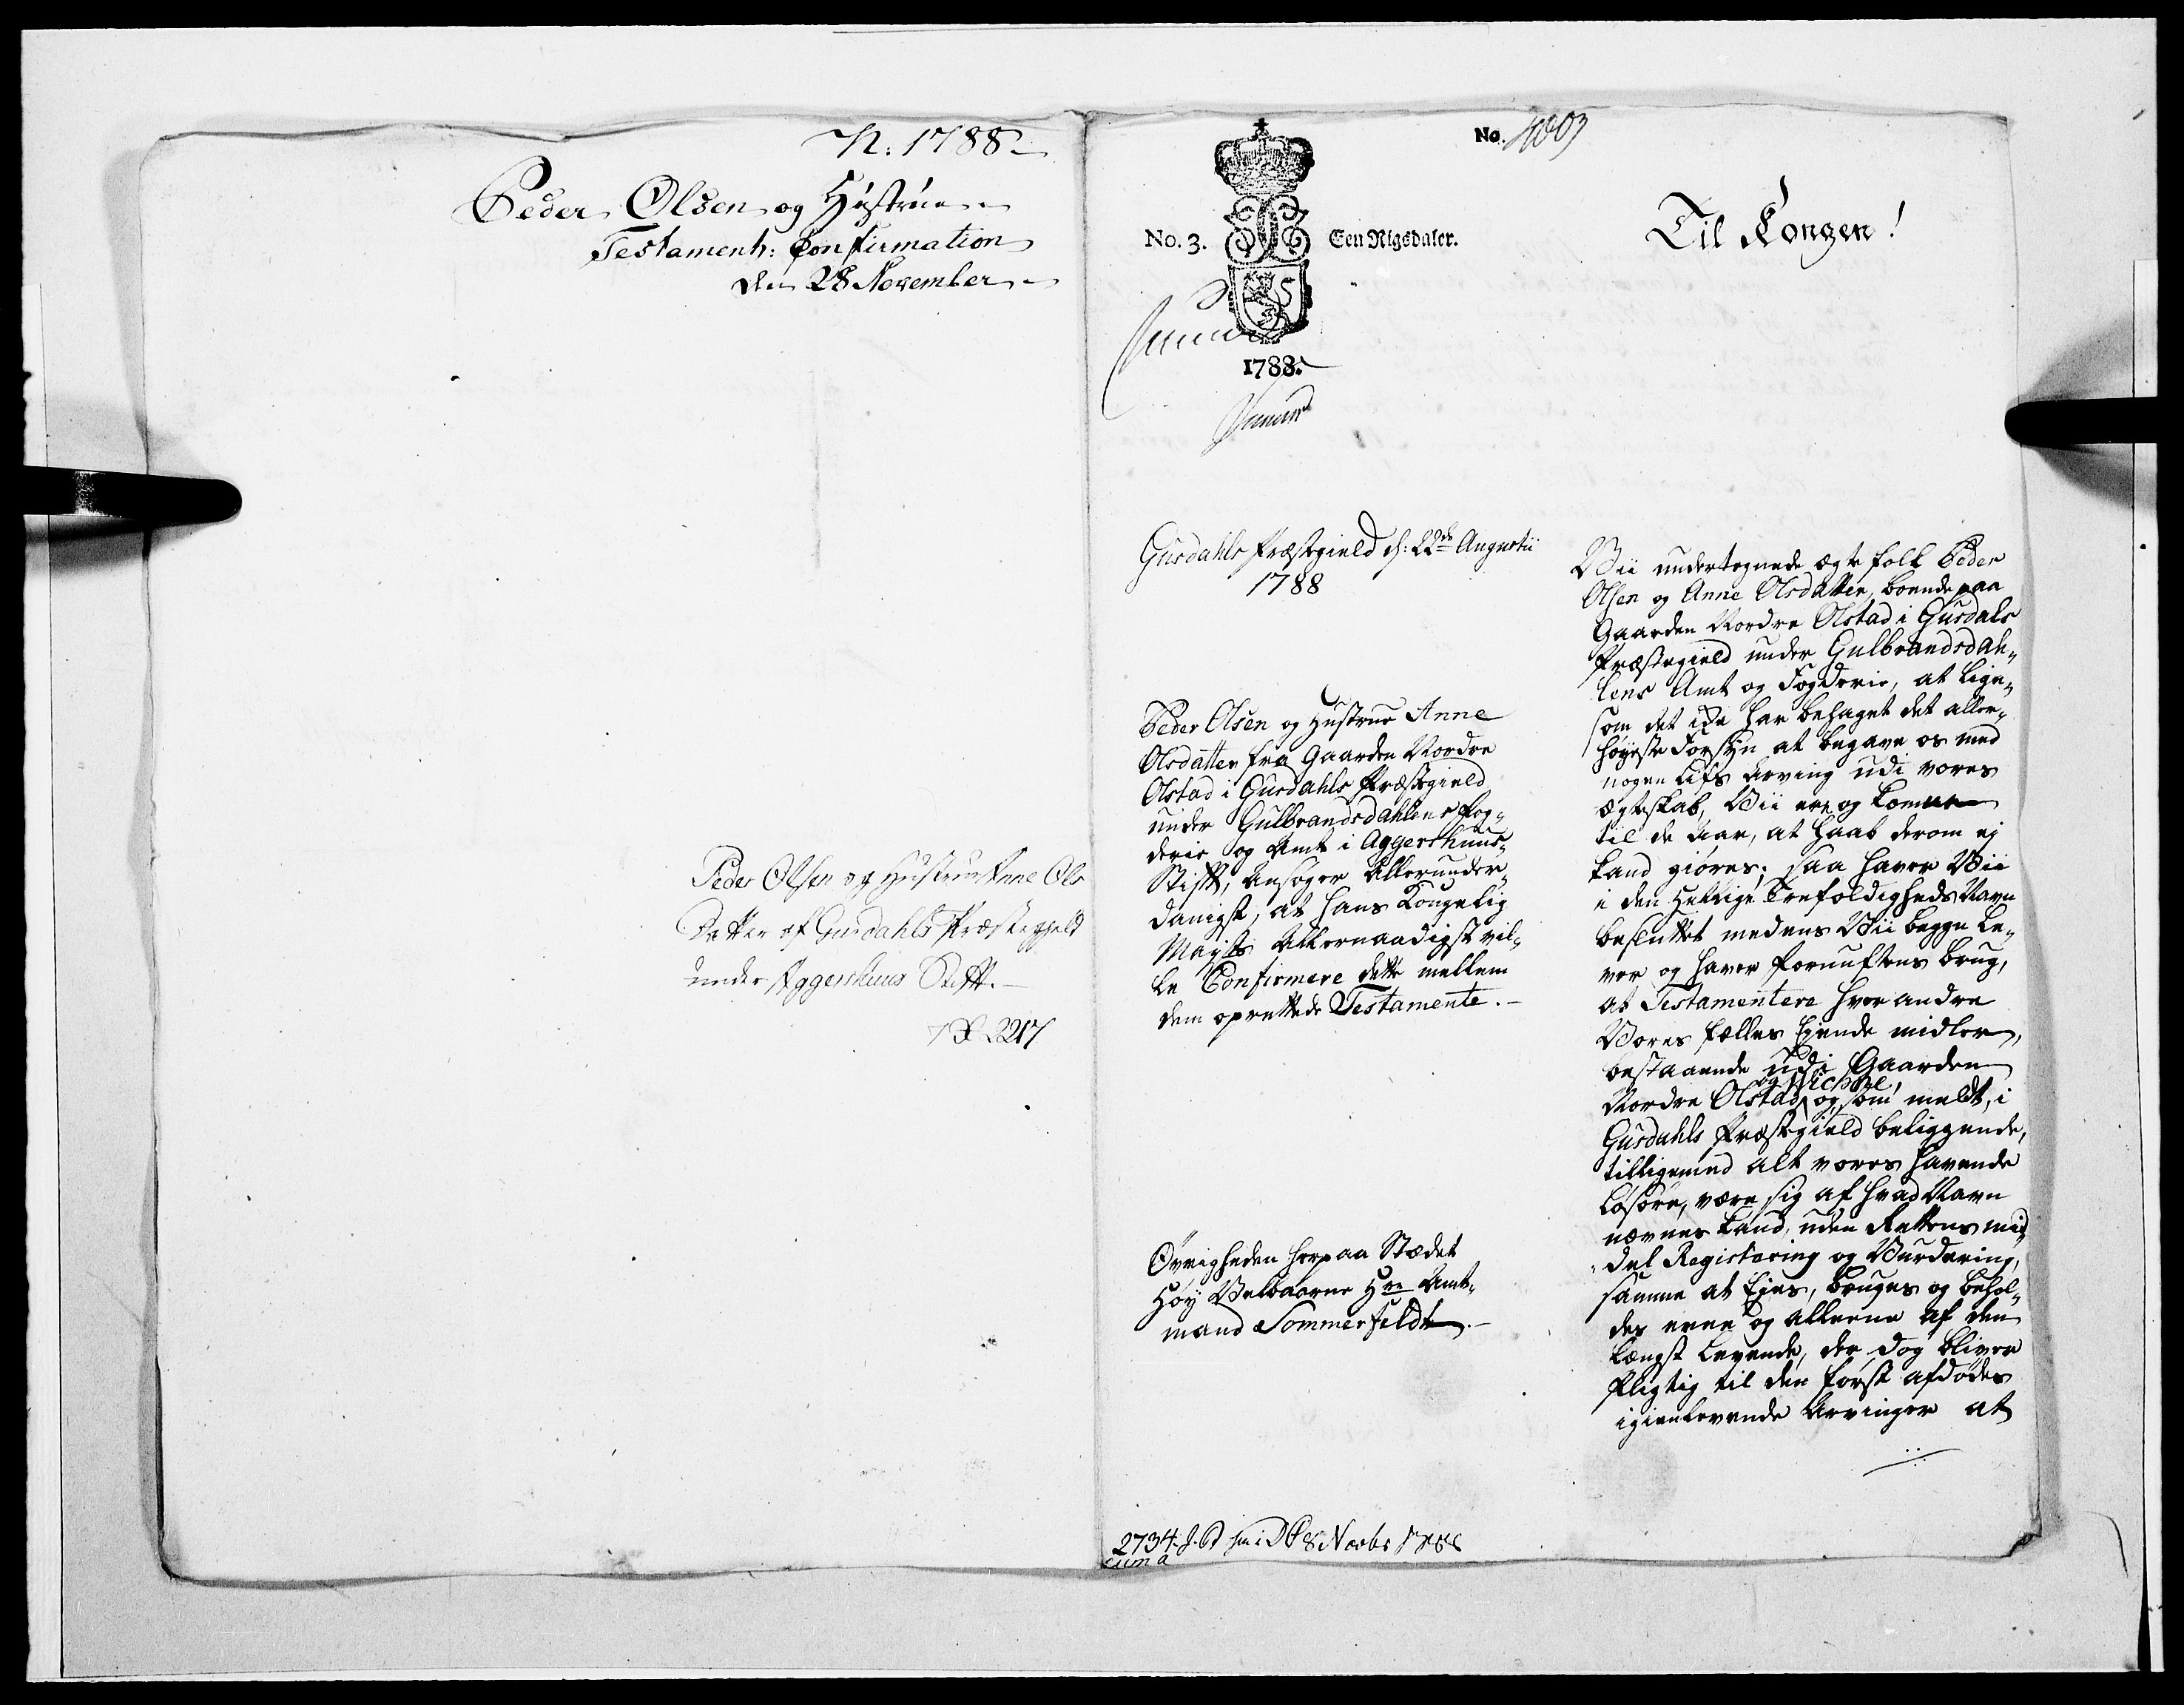 N: 1788
Peder Olsen og Hustrue
Testament: Confirmation
den 28 November
Peder Olsen og Hustrue Anne Ols
Datter af Gusdahls Præstegield
under Aggershuus Stift.
2217
No. 4003
No. 3. Een Rigsdaler.
1788.
Til Kongen!
Gusdahls Præstegield d: 22de Augustii
1788
Peder Olsen og Hustrue Anne
Olsdatter fra Gaarden Nordre
Olstad i Gusdahls Præstegield
under Gulbrandsdahlens Fog-
derie og Amt i Aggershuus-
Stift, ansøger Allerunder-
danigst, at Hans Kongelig
Majts Allernaadigst vil-
le Confirmere dette mellem
dem oprettede Testamente.
Øvrigheden herpaa Stædet
Høy Velbaarne Hre Amt-
mand Sommerfeldt.
2734. 8 Novbr 1788
Vii undertegnede ægte folk Peder
Olsen og Anne Olsdatter, boende paa
Gaarden Nordre Olstad i Gusdals
Præstegield under Gulbrandsdah-
lens Amt og Fogderie, at lige-
som det icke har behaget det aller-
høyeste Forsyn at begave os med
nogen Lifs Arving udi vores
ægteskab, Vii ere og komne
til de Aar, at haab derom ej
kand giøres; saa haver Vii
i den Hellige Trefoldigheds Navn
besluttet medens Vii begge le-
ver og haver fornuftens brug,
at Testamentere hverandre
Vores fælles Ejende midler,
bestaaende udi Gaarden
og Wichne,
Nordre Olstad og, som meldt, i
Gusdahls Præstegield beliggende,
tilligemed alt vores havende
Løsøre, være sig af hvad Navn
nævnes kand, uden Rettens mid-
del Registering og Vurdering,
samme at Ejes, bruges og behol-
des eene og alleene af den
længst Levende, der dog bliver
pligtig til den først afdødes
igienlevende Arvinger at